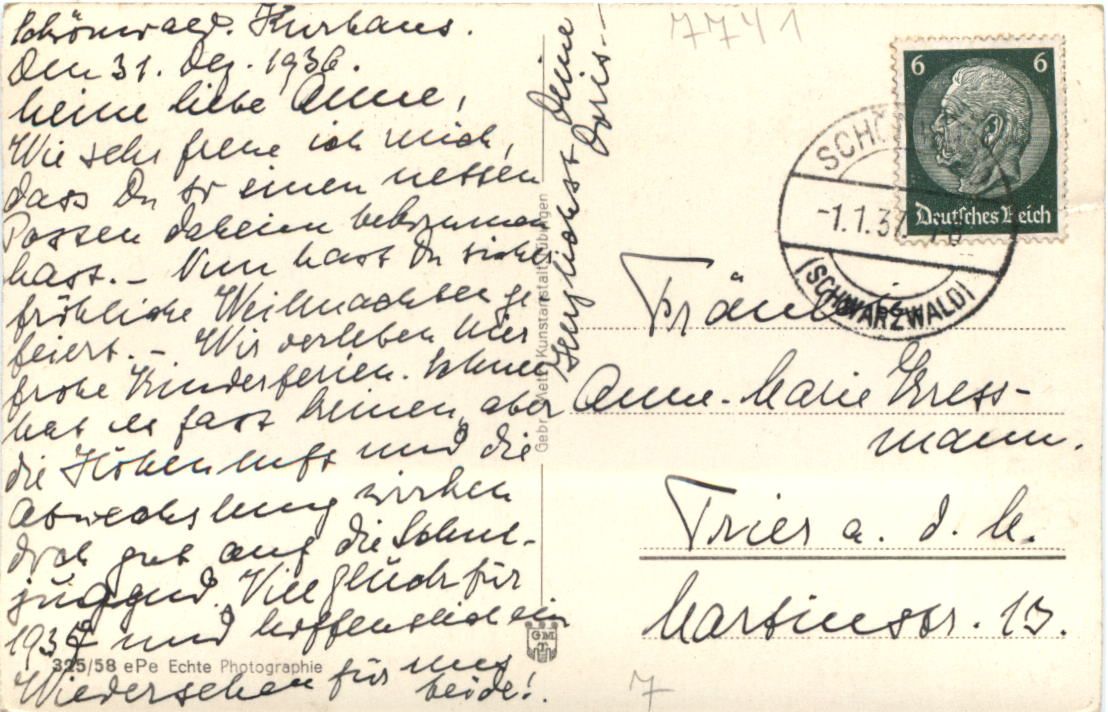 Schönwald. Kurhaus.
Den 31. Dez. 1936.
Meine liebe Anne,
Wie sehr freue ich mich,
dass Du so einen netten
Posten daheim bekommen
hast. – Nun hast Du sicher
fröhliche Weihnachten ge-
feiert. – Wir verleben hier
frohe Kinderferien. Schnee
hat es fast keinen, aber
die Höhenluft und die
Abwechslung wirken
doch gut auf die Schul-
jugend. Viel Glück für
1937 und hoffentlich ein
Wiedersehen für uns
beide!
Herzlichst Deine
Doris. –
325/58 ePe Echte Photographie
Gebr. Metz Kunstanstalt Tübingen
GM
T
7741
6 6
Deutsches Reich
SCHÖ
-1.1.37.
(SCHWARZWALD)
Fräulein
Anne-Marie
mann.
Trier a. d. M.
Martinstr. 13.
7